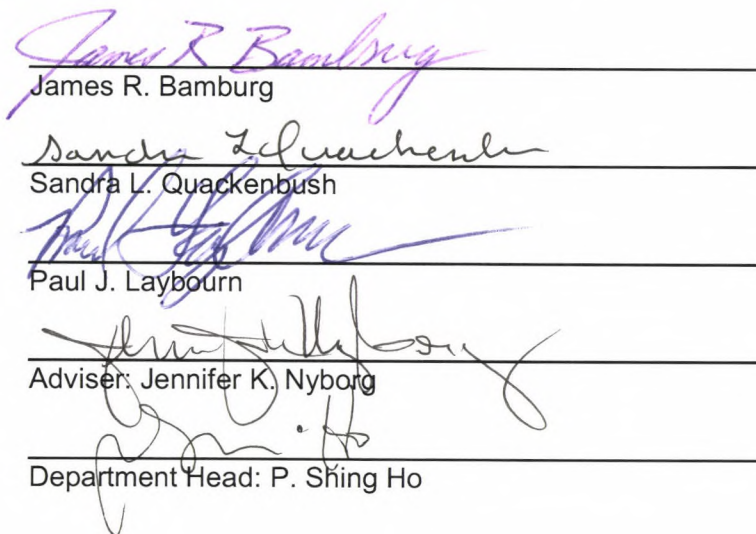 James R Bamburg
James R. Bamburg
Sandra L Quackenbush
Sandra L. Quackenbush
Paul J. Laybourn
Adviser: Jennifer K. Nyborg
Department Head: P. Shing Ho